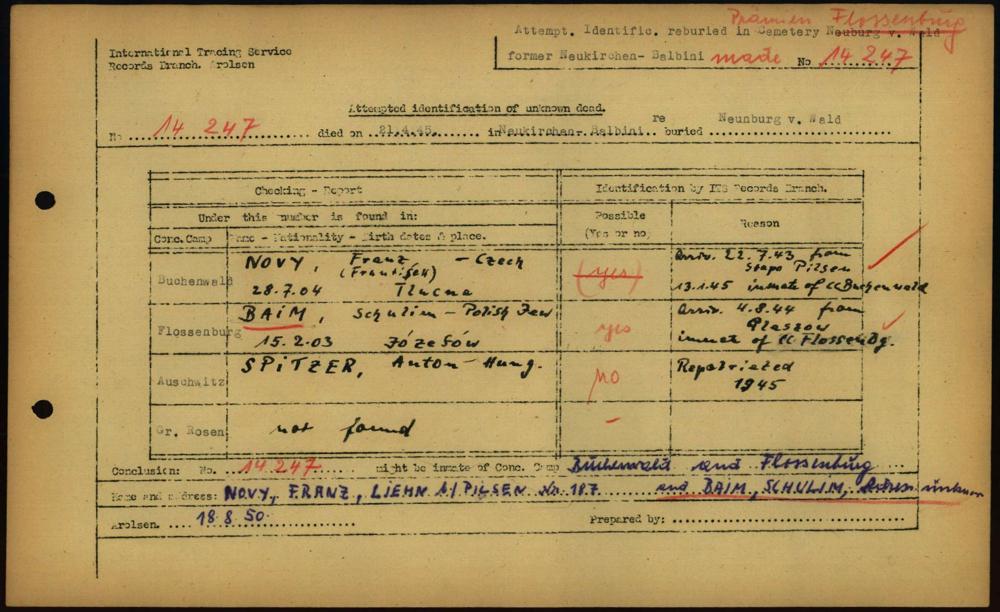 Prämien Flossenbürg
Attempt. Identific. reburied in Cemetery Neuburg v. Wald
International Tracing Service
Records Branch. Arolsen
former Neukirchen- Balbini made No 14 247
Attempted identification of unknown dead.
No 14 247 died on 21.4.45. in Neukirchen- Balbini. re buried Neunburg v. Wald
Checking - Report
Identification by ITS Records Branch.
Under this number is found in:
Possible (Yes or no)
Reason
Conc.Camp Name - Nationality - Birth dates & place.
Buchenwald NOVY, Franz (František) - Czech
28.7.04 Tlucna
(yes)
Arriv. 22.7.43 from Stapo Pilsen
13.1.45 inmate of CC Buchenwald
Flossenburg BAIM, Schulim - Polish Jew
15.2.03 Józefów
yes
Arriv. 4.8.44 from Plaszow
inmate of CC Flossenbg.
Auschwitz SPITZER, Anton - Hung.
no
Repatriated 1945
Gr. Rosen not found
-
Conclusion: No. 14 247 might be inmate of Conc. Camp Buchenwald and Flossenbürg
Name and address: NOVY, FRANZ, LIEHN b/PILSEN No. 187. and BAIM, SCHULIM, Adress unknown
Arolsen. 18.8.50. Prepared by: